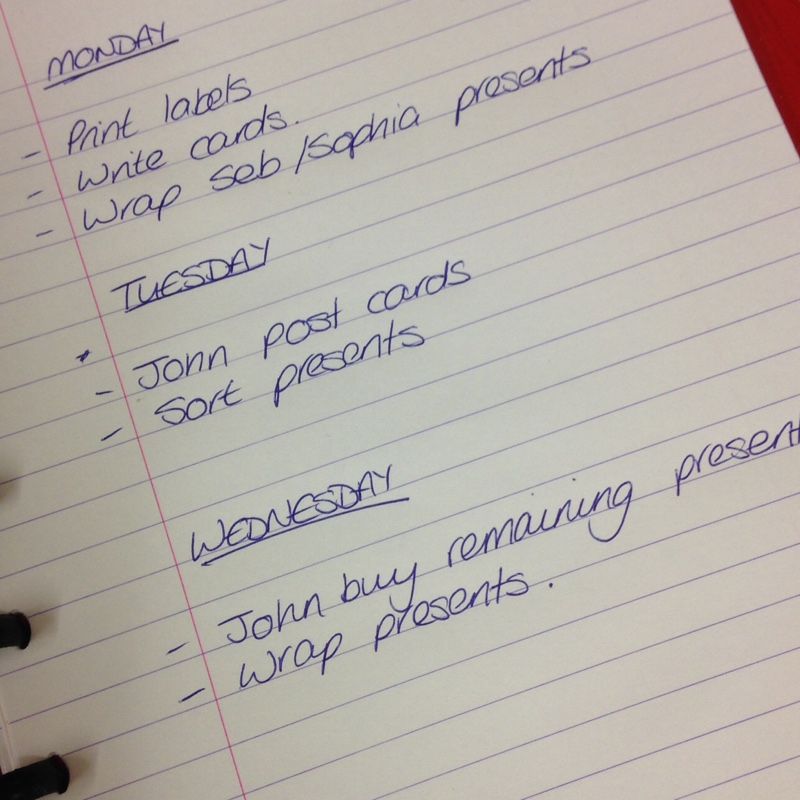 MONDAY
- Print labels
- Write cards.
- Wrap Seb/Sophia presents
TUESDAY
- John post cards
- Sort presents
WEDNESDAY
- John buy remaining present
- Wrap presents.